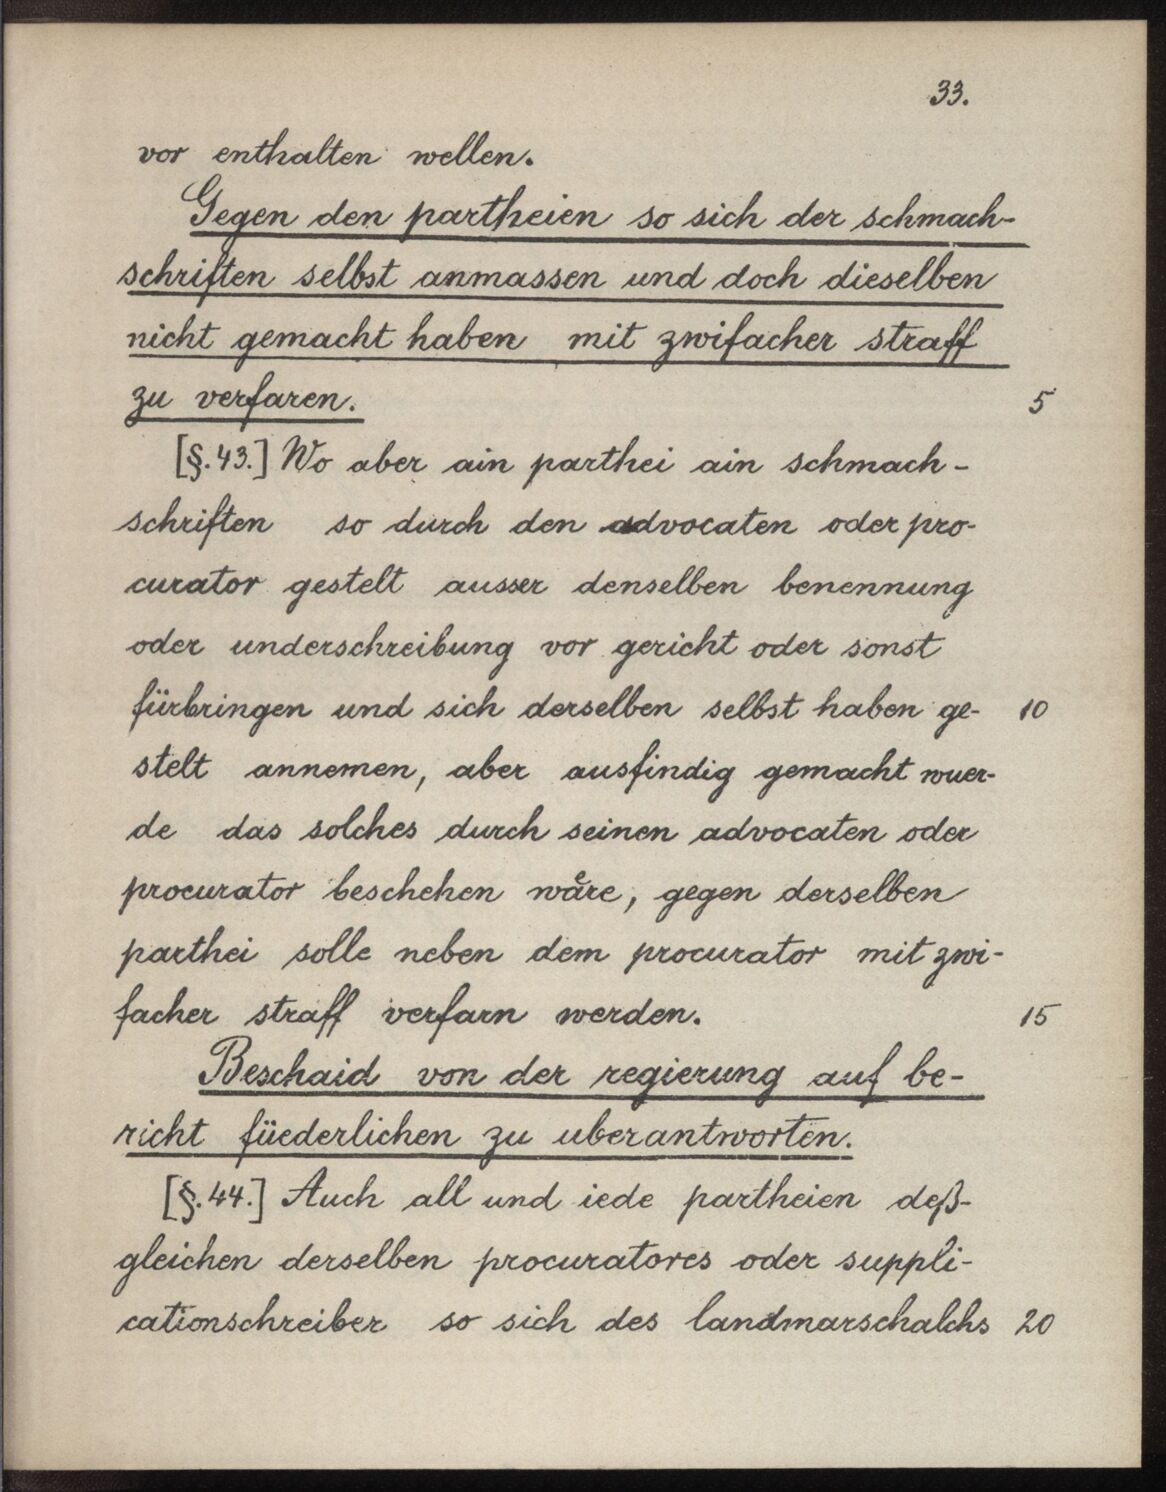 33.
vor enthalten wellen.
Gegen den partheien so sich der schmach-
schriften selbst anmassen und doch dieselben
nicht gemacht haben mit zwifacher straff
zu verfaren. 5
[§.43.] Wo aber ain parthei ain schmach-
schriften so durch den advocaten oder pro-
curator gestelt ausser denselben benennung
oder underschreibung vor gericht oder sonst
fürbringen und sich derselben selbst haben ge- 10
stelt annemen, aber ausfindig gemacht wuer-
de das solches durch seinen advocaten oder
procurator beschehen waͤre, gegen derselben
parthei solle neben dem procurator mit zwi-
facher straff verfarn werden. 15
Beschaid von der regierung auf be-
richt füederlichen zu uberantworten.
[§.44.] Auch all und iede partheien deß-
gleichen derselben procuratores oder suppli-
cationschreiber so sich des landmarschalchs 20